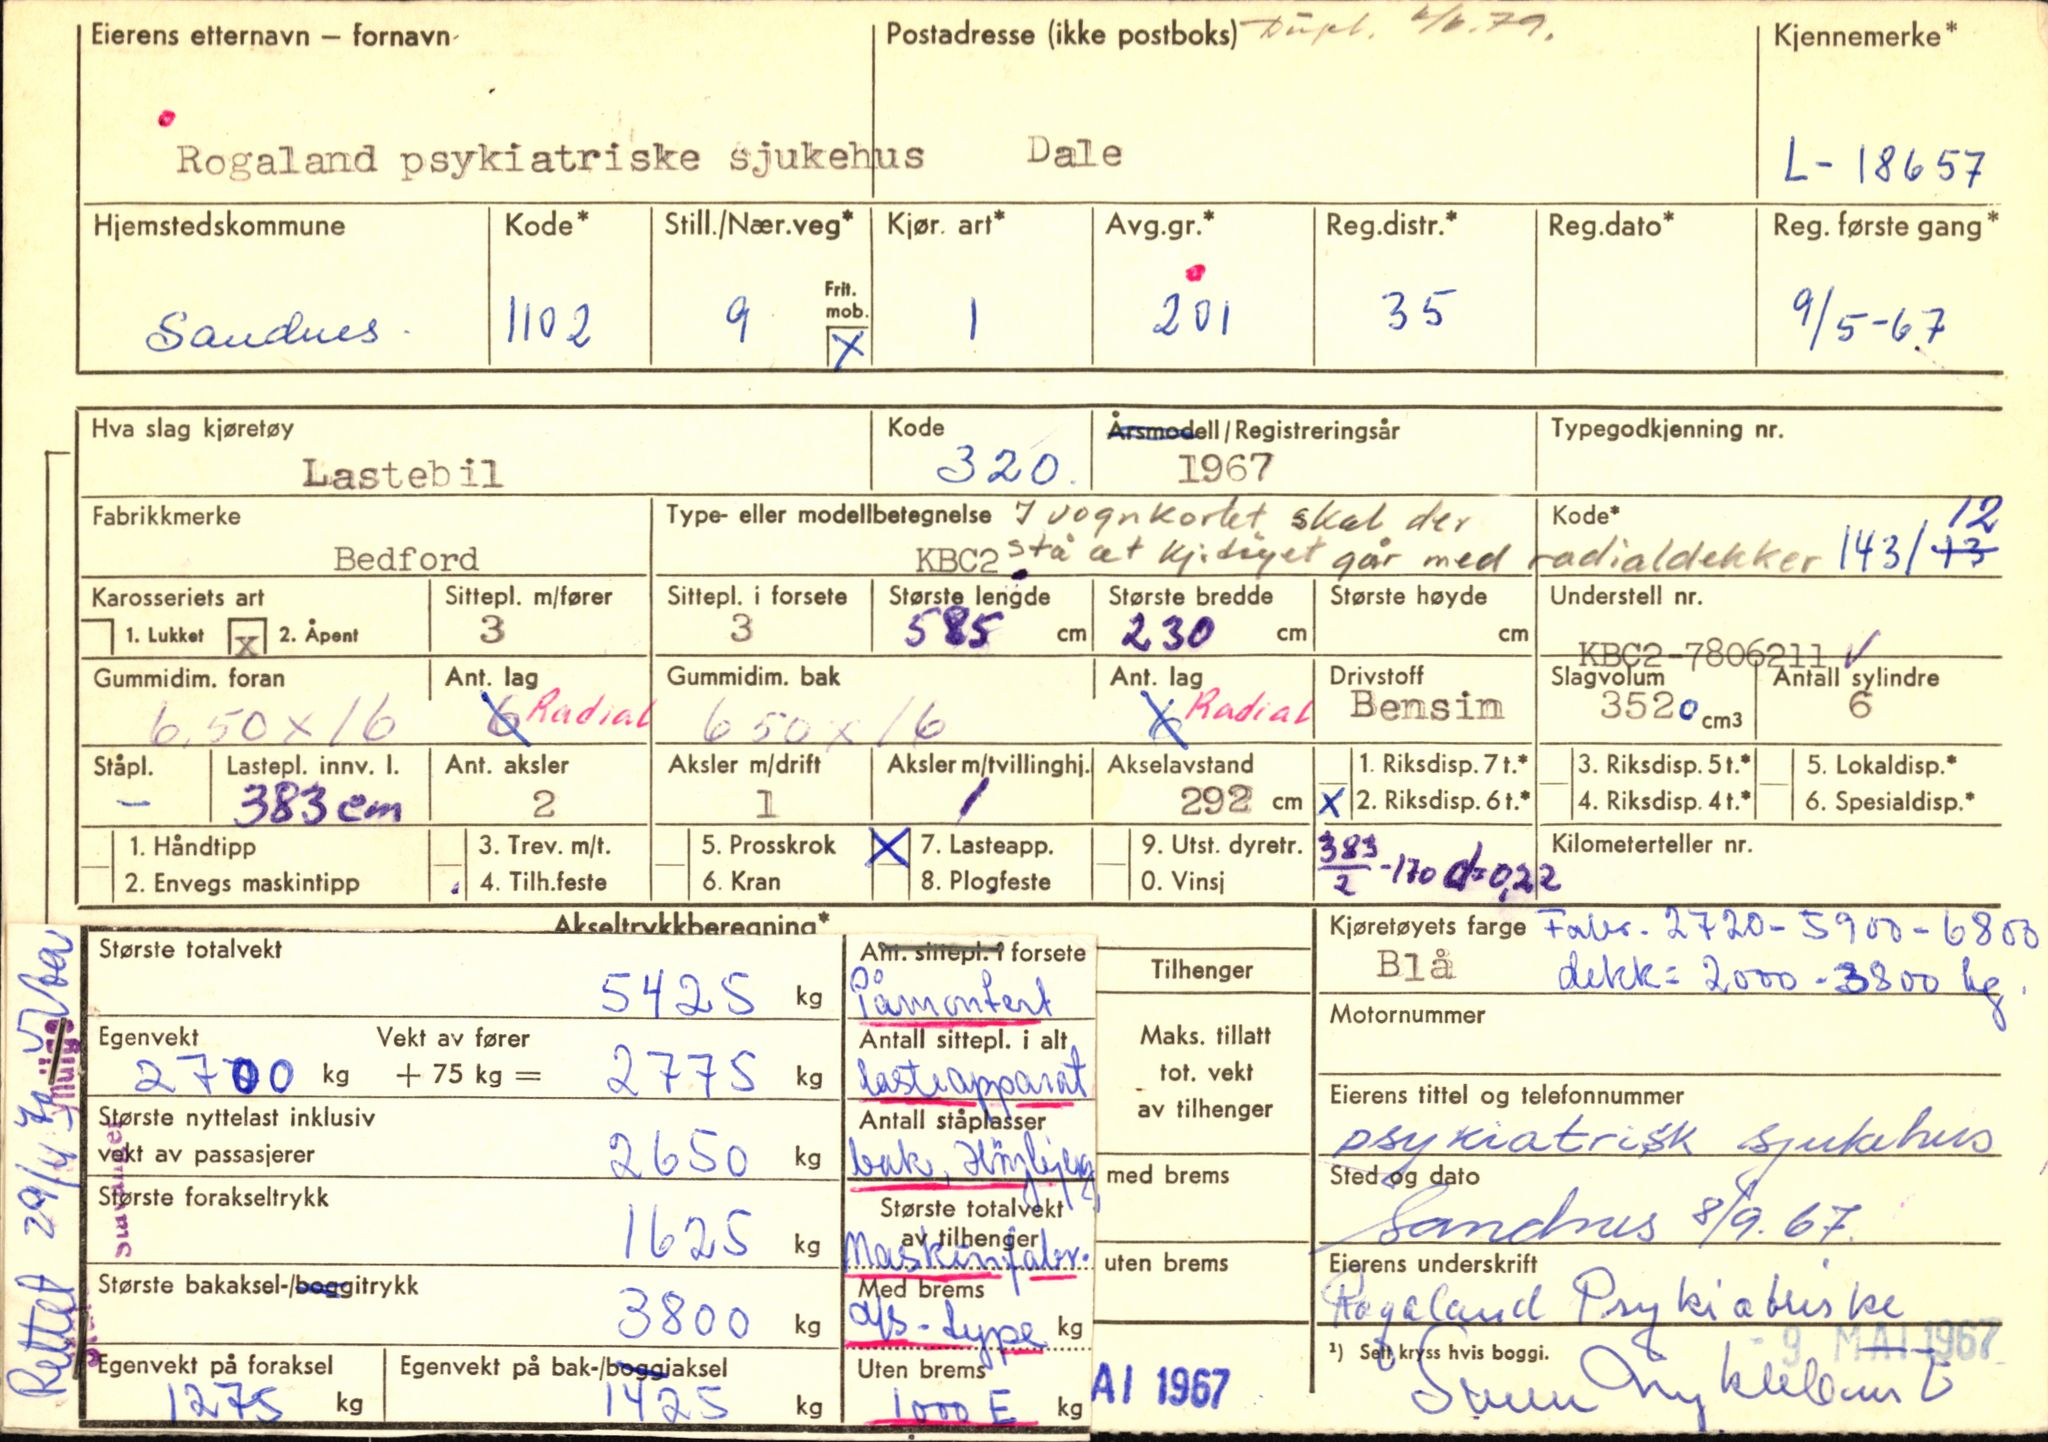 Eierens etternavn – fornavn
Postadresse (ikke postboks) Dupl. 6/6.79.
Kjennemerke*
Rogaland psykiatriske sjukehus Dale
L- 18657
Hjemstedskommune Kode* Still./Nær.veg* Kjør. art* Avg.gr.* Reg.distr.* Reg.dato* Reg. første gang*
Frit. mob.
Sandnes. 1102 9 X 1 201 35 9/5-67
Hva slag kjøretøy Kode Årsmodell/Registreringsår Typegodkjenning nr.
Lastebil 320. 1967
Fabrikkmerke Type- eller modellbetegnelse I vognkortet skal der Kode* 12
Bedford KBC2 stå at kj.tøyet går med radialdekker 143/13
Karosseriets art Sittepl. m/fører Sittepl. i forsete Største lengde Største bredde Største høyde Understell nr.
1. Lukket x 2. Åpent 3 3 585 cm 230 cm cm
KBC2-7806211 ✓
Gummidim. foran Ant. lag Gummidim. bak Ant. lag Drivstoff Slagvolum Antall sylindre
6.50 x 16 6 Radial 650 x 16 6 Radial Bensin 3520 cm3 6
Ståpl. Lastepl. innv. l. Ant. aksler Aksler m/drift Aksler m/tvillinghj. Akselavstand 1. Riksdisp. 7 t.* 3. Riksdisp. 5 t.* 5. Lokaldisp.*
– 383 cm 2 1 1 292 cm X 2. Riksdisp. 6 t.* 4. Riksdisp. 4 t.* 6. Spesialdisp.*
1. Håndtipp 3. Trev. m/t. 5. Prosskrok X 7. Lasteapp. 9. Utst. dyretr. 383/2 -170 d=0,22 Kilometerteller nr.
2. Envegs maskintipp 4. Tilh.feste 6. Kran 8. Plogfeste 0. Vinsj
Akseltrykkberegning*
Kjøretøyets farge Fabr. 2720-5900-6800
Blå dekk = 2000 - 3800 kg.
Største totalvekt
5425 kg
Ant. sittepl. i forsete
Påmontert
Tilhenger
Motornummer
Egenvekt Vekt av fører
2700 kg + 75 kg = 2775 kg
Antall sittepl. i alt
lasteapparat
Maks. tillatt
tot. vekt
av tilhenger
Eierens tittel og telefonnummer
psykiatrisk sjukehus
Største nyttelast inklusiv
vekt av passasjerer 2650 kg
Antall ståplasser
bak,
med brems
Sted og dato
Sandnes 8/9.67.
Største forakseltrykk
1625 kg
Største totalvekt
av tilhenger
Maskinfabr.
uten brems
Eierens underskrift
Rogaland Psykiatriske
Største bakaksel-/boggitrykk
3800 kg
Med brems
-type kg
¹) Sett kryss hvis boggi.
- 9 MAI 1967
Egenvekt på foraksel Egenvekt på bak-/boggiaksel
1275 kg 1425 kg
Uten brems
1000 E kg
AI 1967
Rettet 29/4
Stavanger